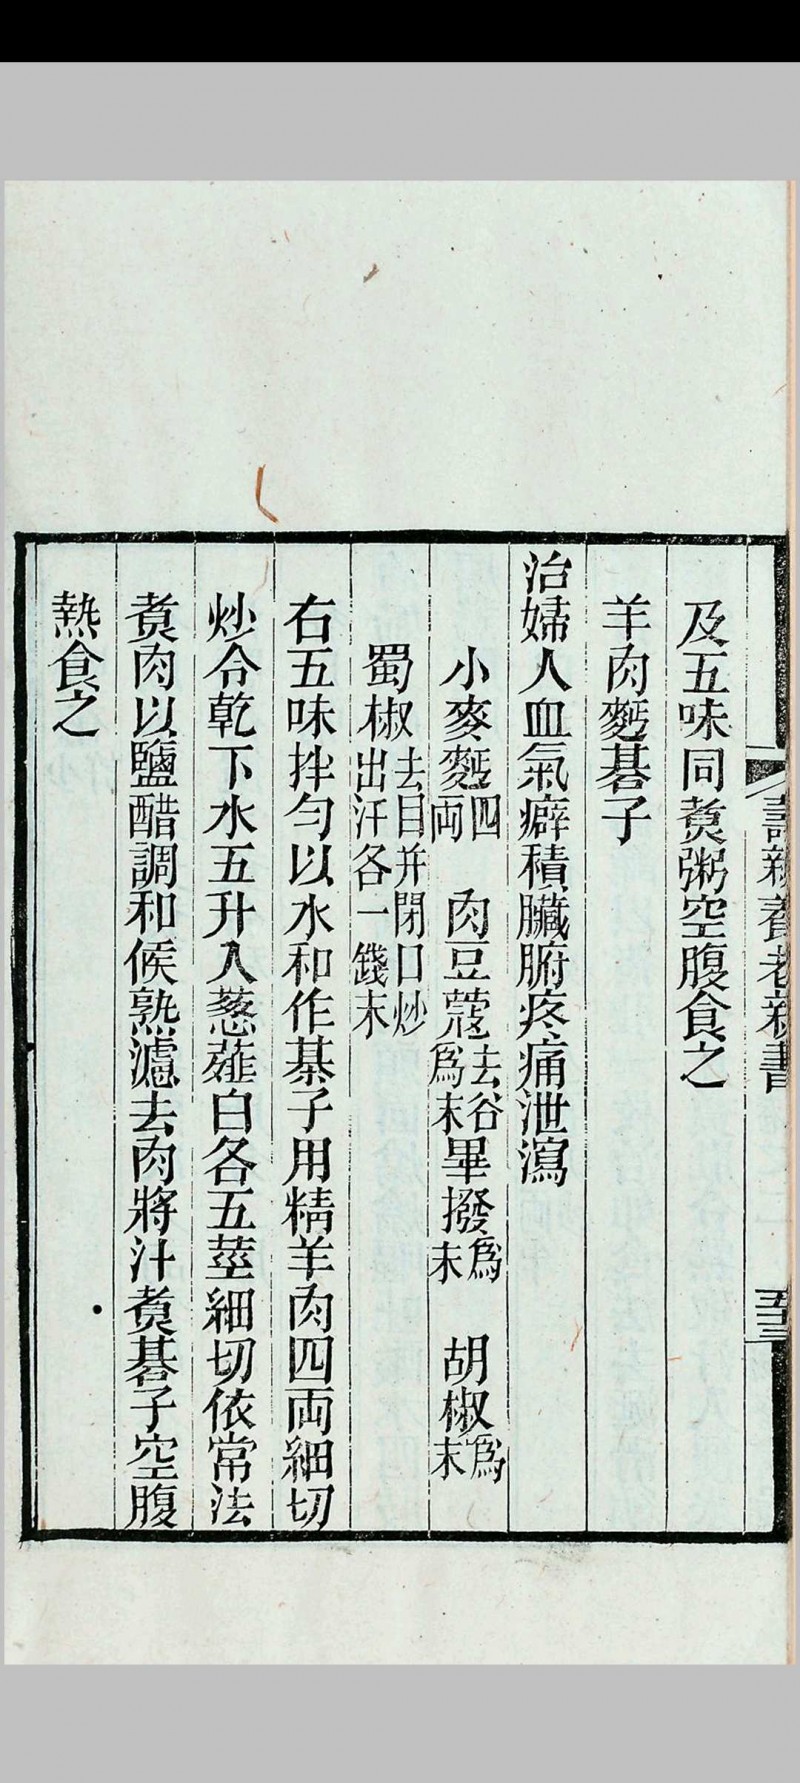 壽親養老新書
五十三
及五味同煑粥空腹食之
羊肉麪棊子
治婦人血氣癖積臟腑疼痛泄瀉
小麥麪四兩 肉豆蔻去谷爲末 畢撥爲末 胡椒爲末
蜀椒去目并閉口炒出汗各一錢末
右五味拌勻以水和作棊子用精羊肉四兩細切
炒令乾下水五升入葱薤白各五莖細切依常法
煑肉以鹽醋調和候熟濾去肉將汁煑棊子空腹
熱食之